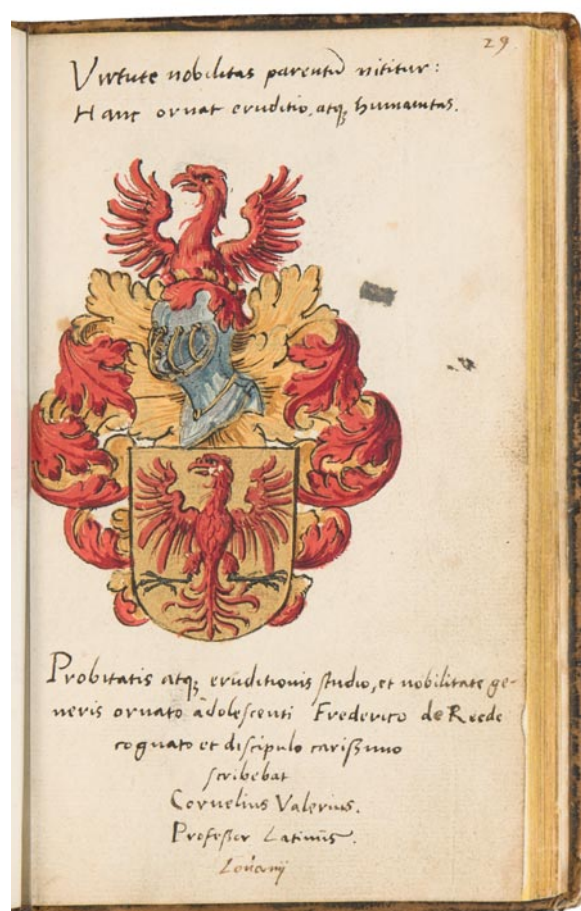 29.
Virtute nobilitas parentũ nititur:
Hanc ornat eruditio, atq; humanitas.
Probitatis atq; erũditionis studio, et nobilitate ge-
neris ornato adolescenti Frederico de Reede
cognato et discipulo carißimo
scribebat
Cornelius Valerius.
Profeßor Latinũs.
Lovanij